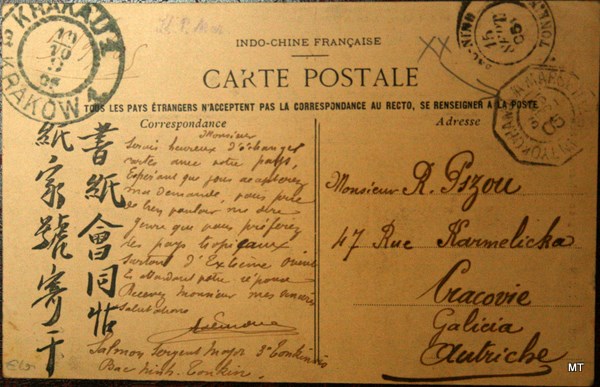 INDO-CHINE FRANÇAISE
CARTE POSTALE
TOUS LES PAYS ÉTRANGERS N'ACCEPTENT PAS LA CORRESPONDANCE AU RECTO, SE RENSEIGNER A LA POSTE
Correspondance
Adresse
KRAKAU 2
KRAKÓW
BAC-NINH
TONKIN
15
05
Monsieur
Serais heureux d'échanger
cartes avec votre pays,
Espérant que vous accepterez
ma demande, vous prie
de bien vouloir me dire
genre que vous préférez
les pays tropicaux
Surtout d'Extrême Orient
En attendant votre réponse
Recevez Monsieur mes
salutations
Salmon Sergent Major 3e Tonkinois
Bac Ninh. Tonkin.
書紙會同帖
紙家號寄于
Monsieur R. Pszou
47 Rue Karmelicka
Cracovie
Galicia
Autriche
XX
MT